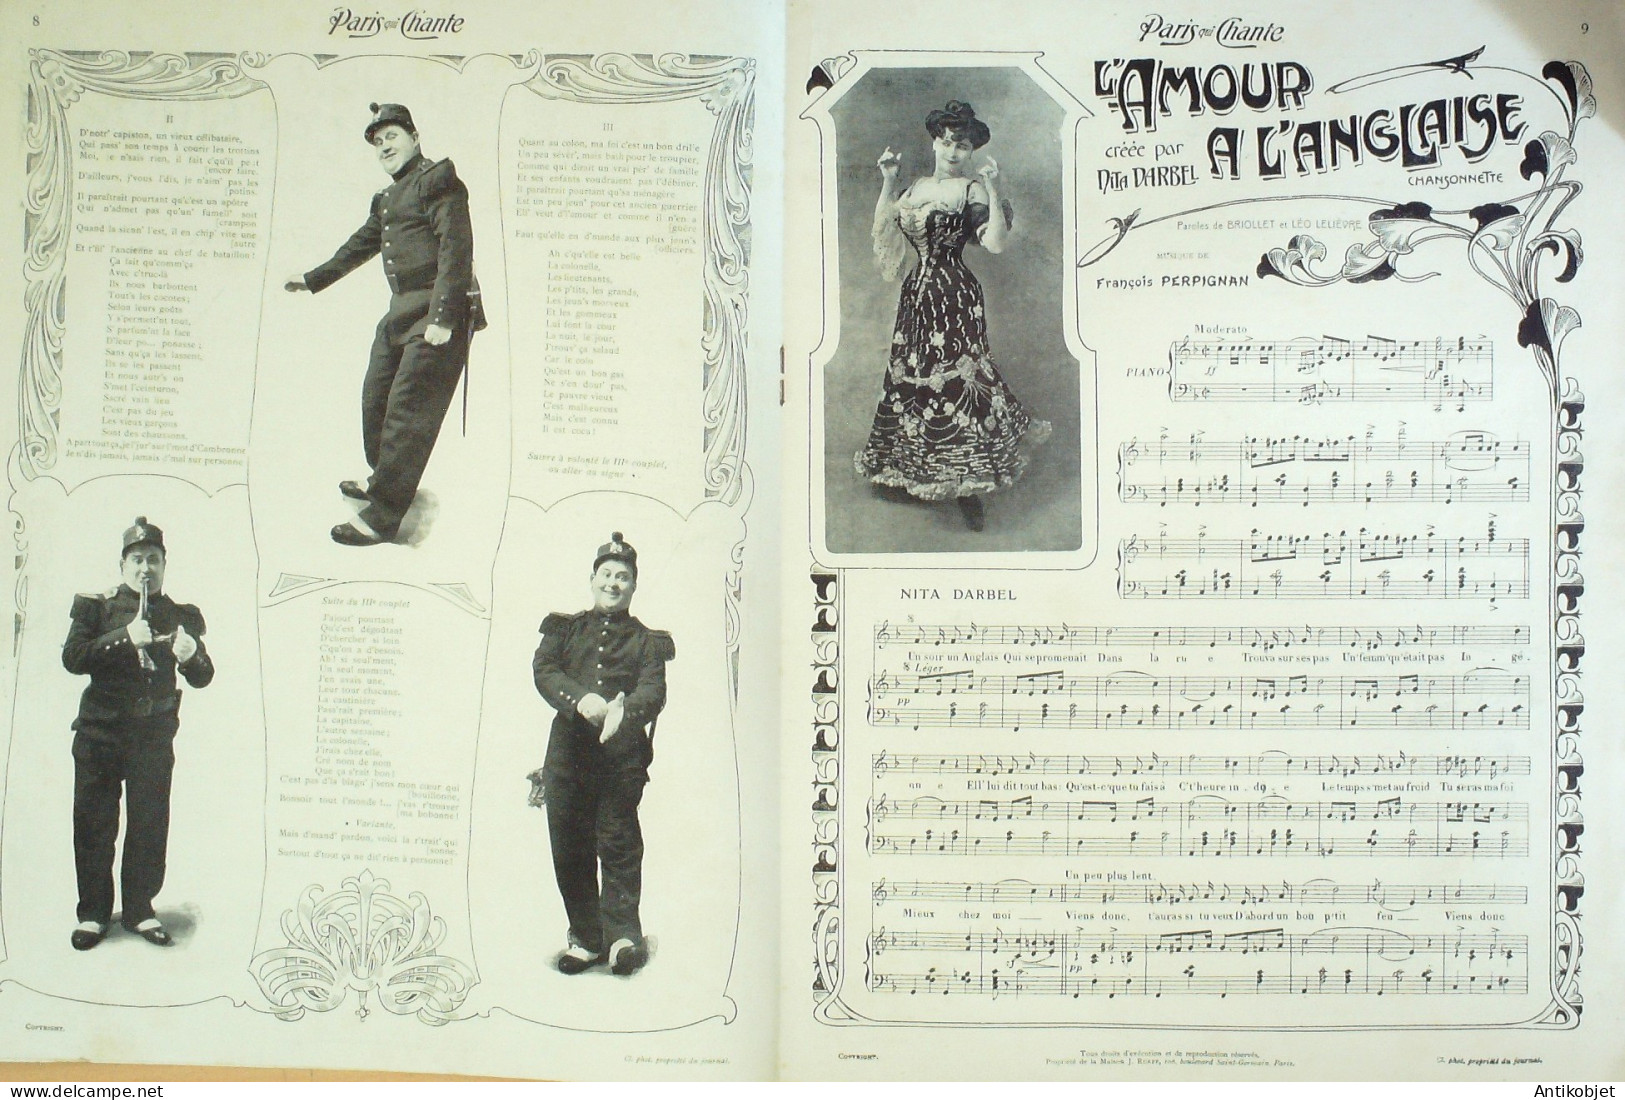 8
Paris qui Chante
II
D'notr' capiston, un vieux célibataire,
Qui pass' son temps à courir les trottins
Moi, je n'sais rien, il fait c'qu'il peut
[encor faire.
D'ailleurs, j'vous l'dis, je n'aim' pas les
[potins.
Il paraîtrait pourtant qu'c'est un apôtre
Qui n'admet pas qu'un' fumell' soit
[crampon
Quand la sienn' l'est, il en chip' vite une
[autre
Et r'fil' l'ancienne au chef de bataillon!
Ça fait qu'comm'ça
Avec c'truc-là
Ils nous barbottent
Tout's les cocotes;
Selon leurs goûts
Y s'permett'nt tout,
S' parfum'nt la face
D'leur po... ponasse;
Sans qu'ça les lassent,
Ils se les passent
Et nous autr's on
S'met l'ceinturon,
Sacré vain lieu
C'est pas du jeu
Les vieux garçons
Sont des chaussons.
A part tout ça, je l'jur' sur l'mot d'Cambronne
Je n'dis jamais, jamais d'mal sur personne
III
Quant au colon, ma foi c'est un bon drille
Un peu sévèr', mais bath pour le troupier,
Comme qui dirait un vrai pèr' de famille
Et ses enfants voudraient pas l'débiner.
Il paraîtrait pourtant qu'sa ménagère
Est un peu jeun' pour cet ancien guerrier
Ell' veut d'l'amour et comme il n'en a
[guère
Faut qu'elle en d'mande aux plus jeun's
[officiers.
Ah c'qu'elle est belle
La colonelle,
Les lieutenants,
Les p'tits, les grands,
Les jeun's morveux
Et les gommeux
Lui font la cour
La nuit, le jour,
J'trouv' ça salaud
Car le colo
Qu'est un bon gas
Ne s'en dout' pas,
Le pauvre vieux
C'est malheureux
Mais c'est connu
Il est cocu!
Suivre à volonté le IIIe couplet,
ou aller au signe
Suite du IIIe couplet
J'ajout' pourtant
Qu'c'est dégoûtant
D'chercher si loin
C'qu'on a d'besoin,
Ah! si seul'ment,
Un seul moment,
J'en avais une,
Leur tour chacune,
La cantinière
Pass'rait première;
La capitaine,
L'autre semaine;
La colonelle,
J'irais chez elle,
Cré nom de nom
Que ça s'rait bon!
C'est pas d'la blagu' j'sens mon cœur qui
[bouillonne,
Bonsoir tout l'monde!... j'vas r'trouver
[ma bobonne!
Variante.
Mais d'mand' pardon, voici la r'trait' qui
[sonne,
Surtout d'tout ça ne dit' rien à personne!
Copyright.
Cl. phot. propriété du journal.
Paris qui Chante
9
L'AMOUR
A L'ANGLAISE
créée par
NITA DARBEL
CHANSONNETTE
Paroles de BRIOLLET et LÉO LELIÈVRE
MUSIQUE DE
François PERPIGNAN
Moderato
PIANO
ff
ff
NITA DARBEL
Un soir un Anglais Qui se promenait Dans la ru e Trouva sur ses pas Un' femm' qu'était pas In - gé -
Léger
pp
nu e Ell' lui dit tout bas: Qu'est-c' que tu fais à C't'heure in - du - e Le temps s'met au froid Tu seras ma foi
Un peu plus lent.
Mieux chez moi Viens donc, t'auras si tu veux D'abord un bon p'tit feu Viens donc
sf
pp
Copyright.
Tous droits d'exécution et de reproduction réservés.
Propriété de la Maison J. Rueff, 108, boulevard Saint-Germain, Paris.
Cl. phot. propriété du journal.
Antikobjet